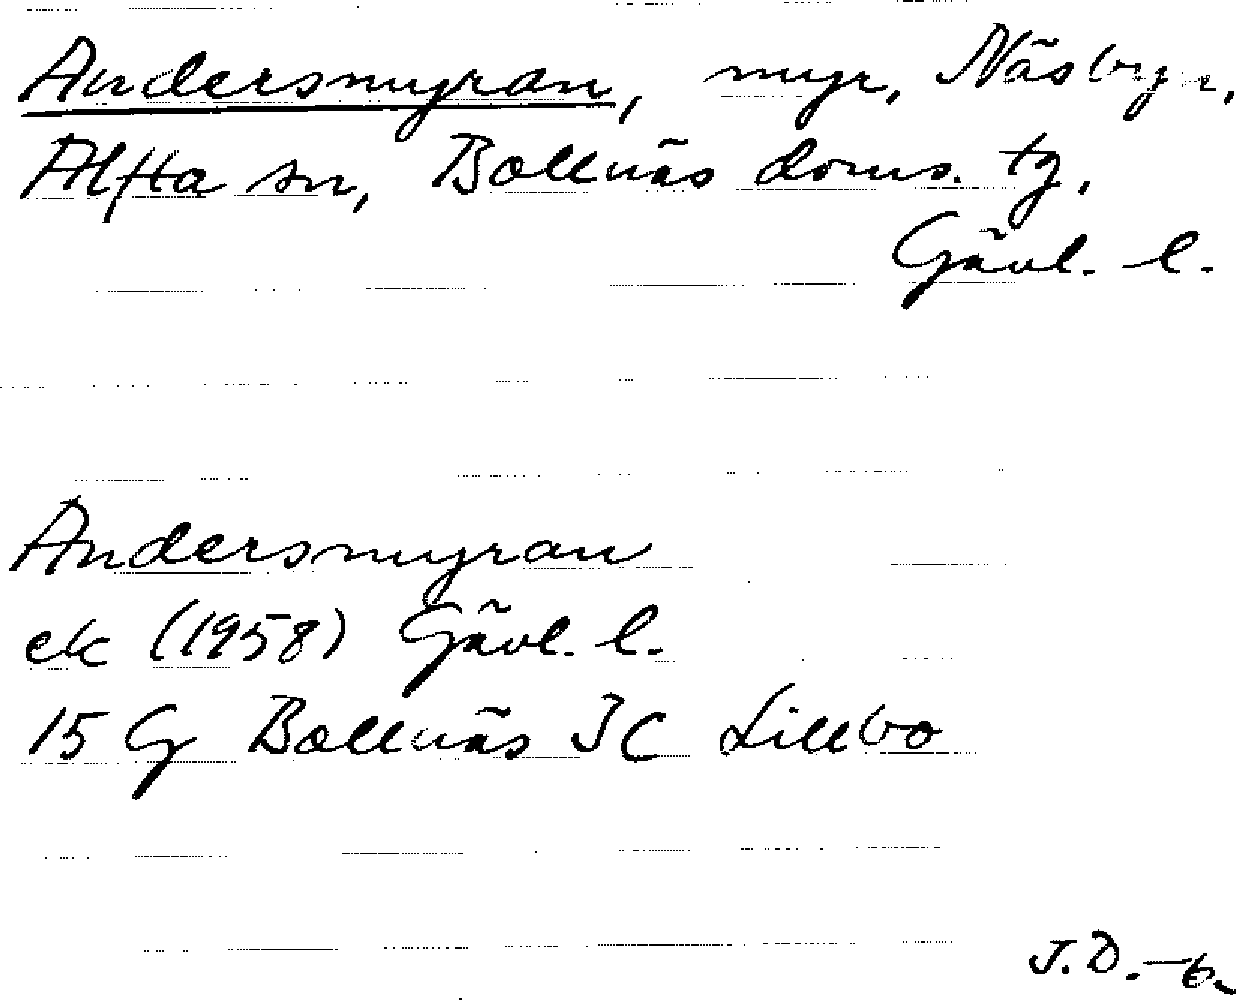 Andersmyran, myr, Näsbyn,
Alfta sn, Bollnäs doms. tg,
Gävl. l.
Andersmyran
ek (1958) Gävl. l.
15 G Bollnäs JC Lillbo
J.D.-6.